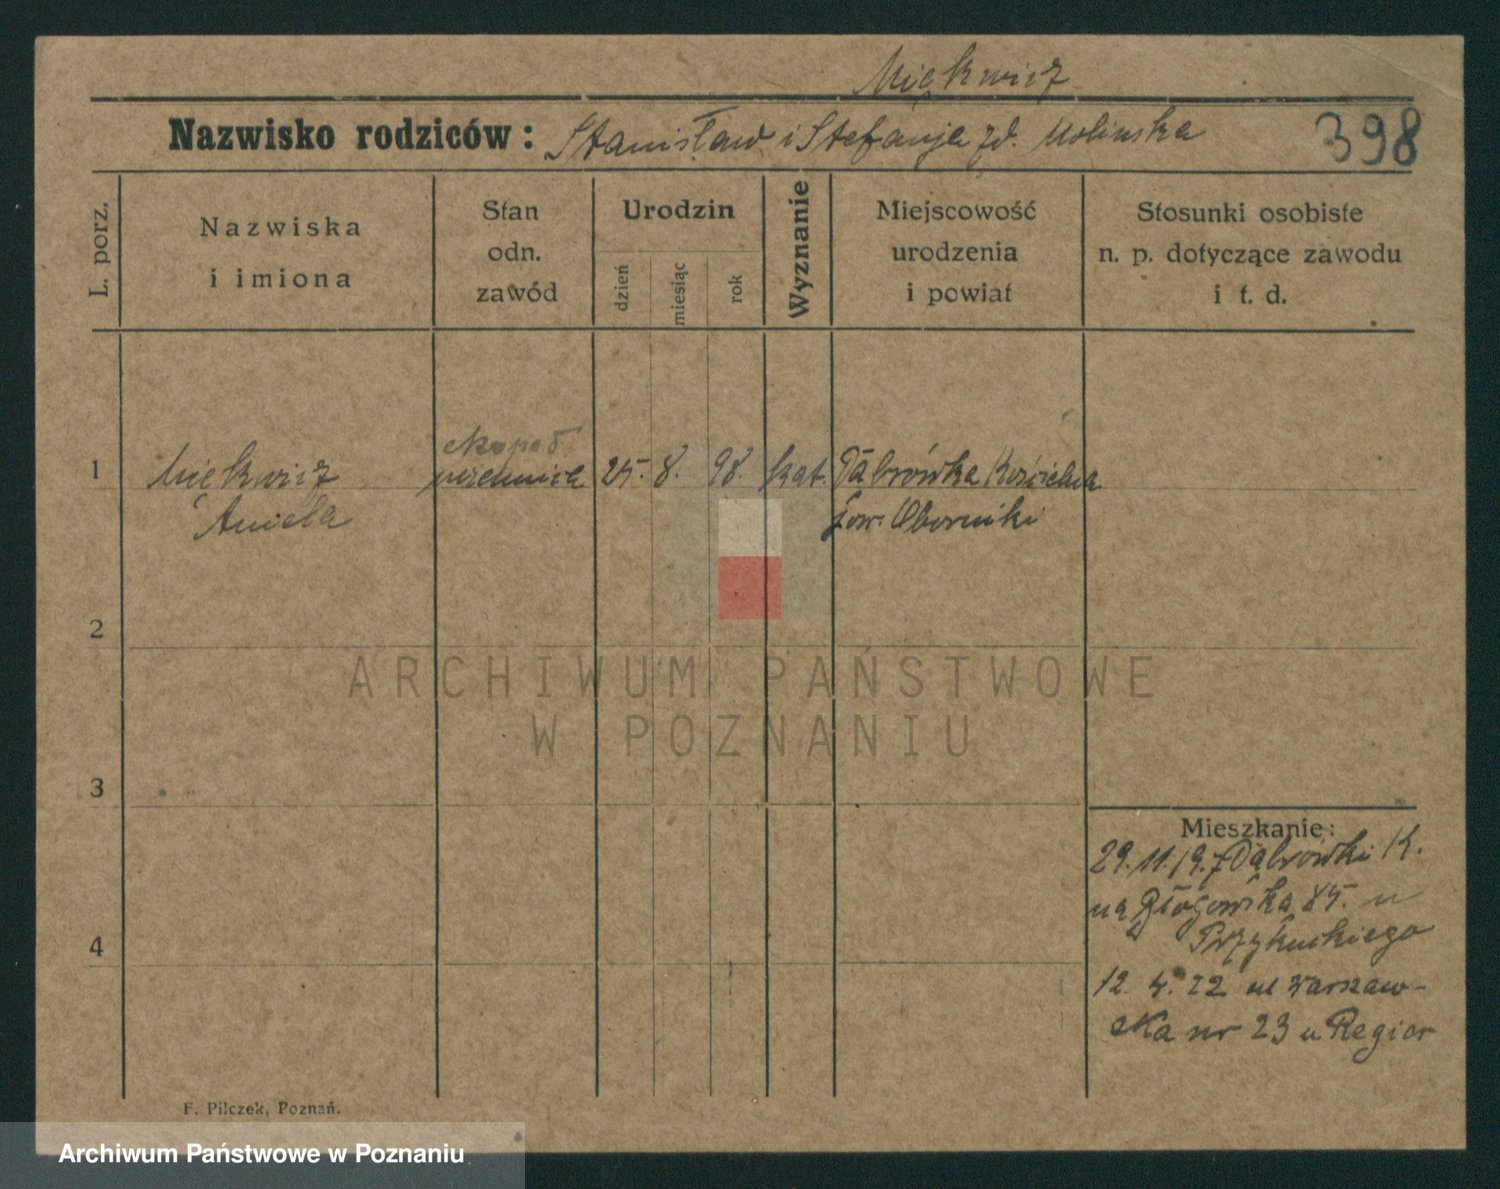 Miękwicz
Nazwisko rodziców: Stanisław i Stefanja zd. Molinska
398
L. porz.
Nazwiska
i imiona
Stan
odn.
zawód
Urodzin
dzień
miesiąc
rok
Wyznanie
Miejscowość
urodzenia
i powiat
Stosunki osobiste
n. p. dotyczące zawodu
i t. d.
1
Miękwicz
Aniela
25. 8. 98. kat. Dąbrówka Kościelna
pow. Oborniki
2
3
4
ARCHIWUM PAŃSTWOWE
W POZNANIU
Mieszkanie:
29. 11. 19. z Dąbrówki K.
na Głogowska 85. u
12. 4. 22 ul Warszaw-
ska nr 23 u Regier
F. Pilczek, Poznań.
Archiwum Państwowe w Poznaniu